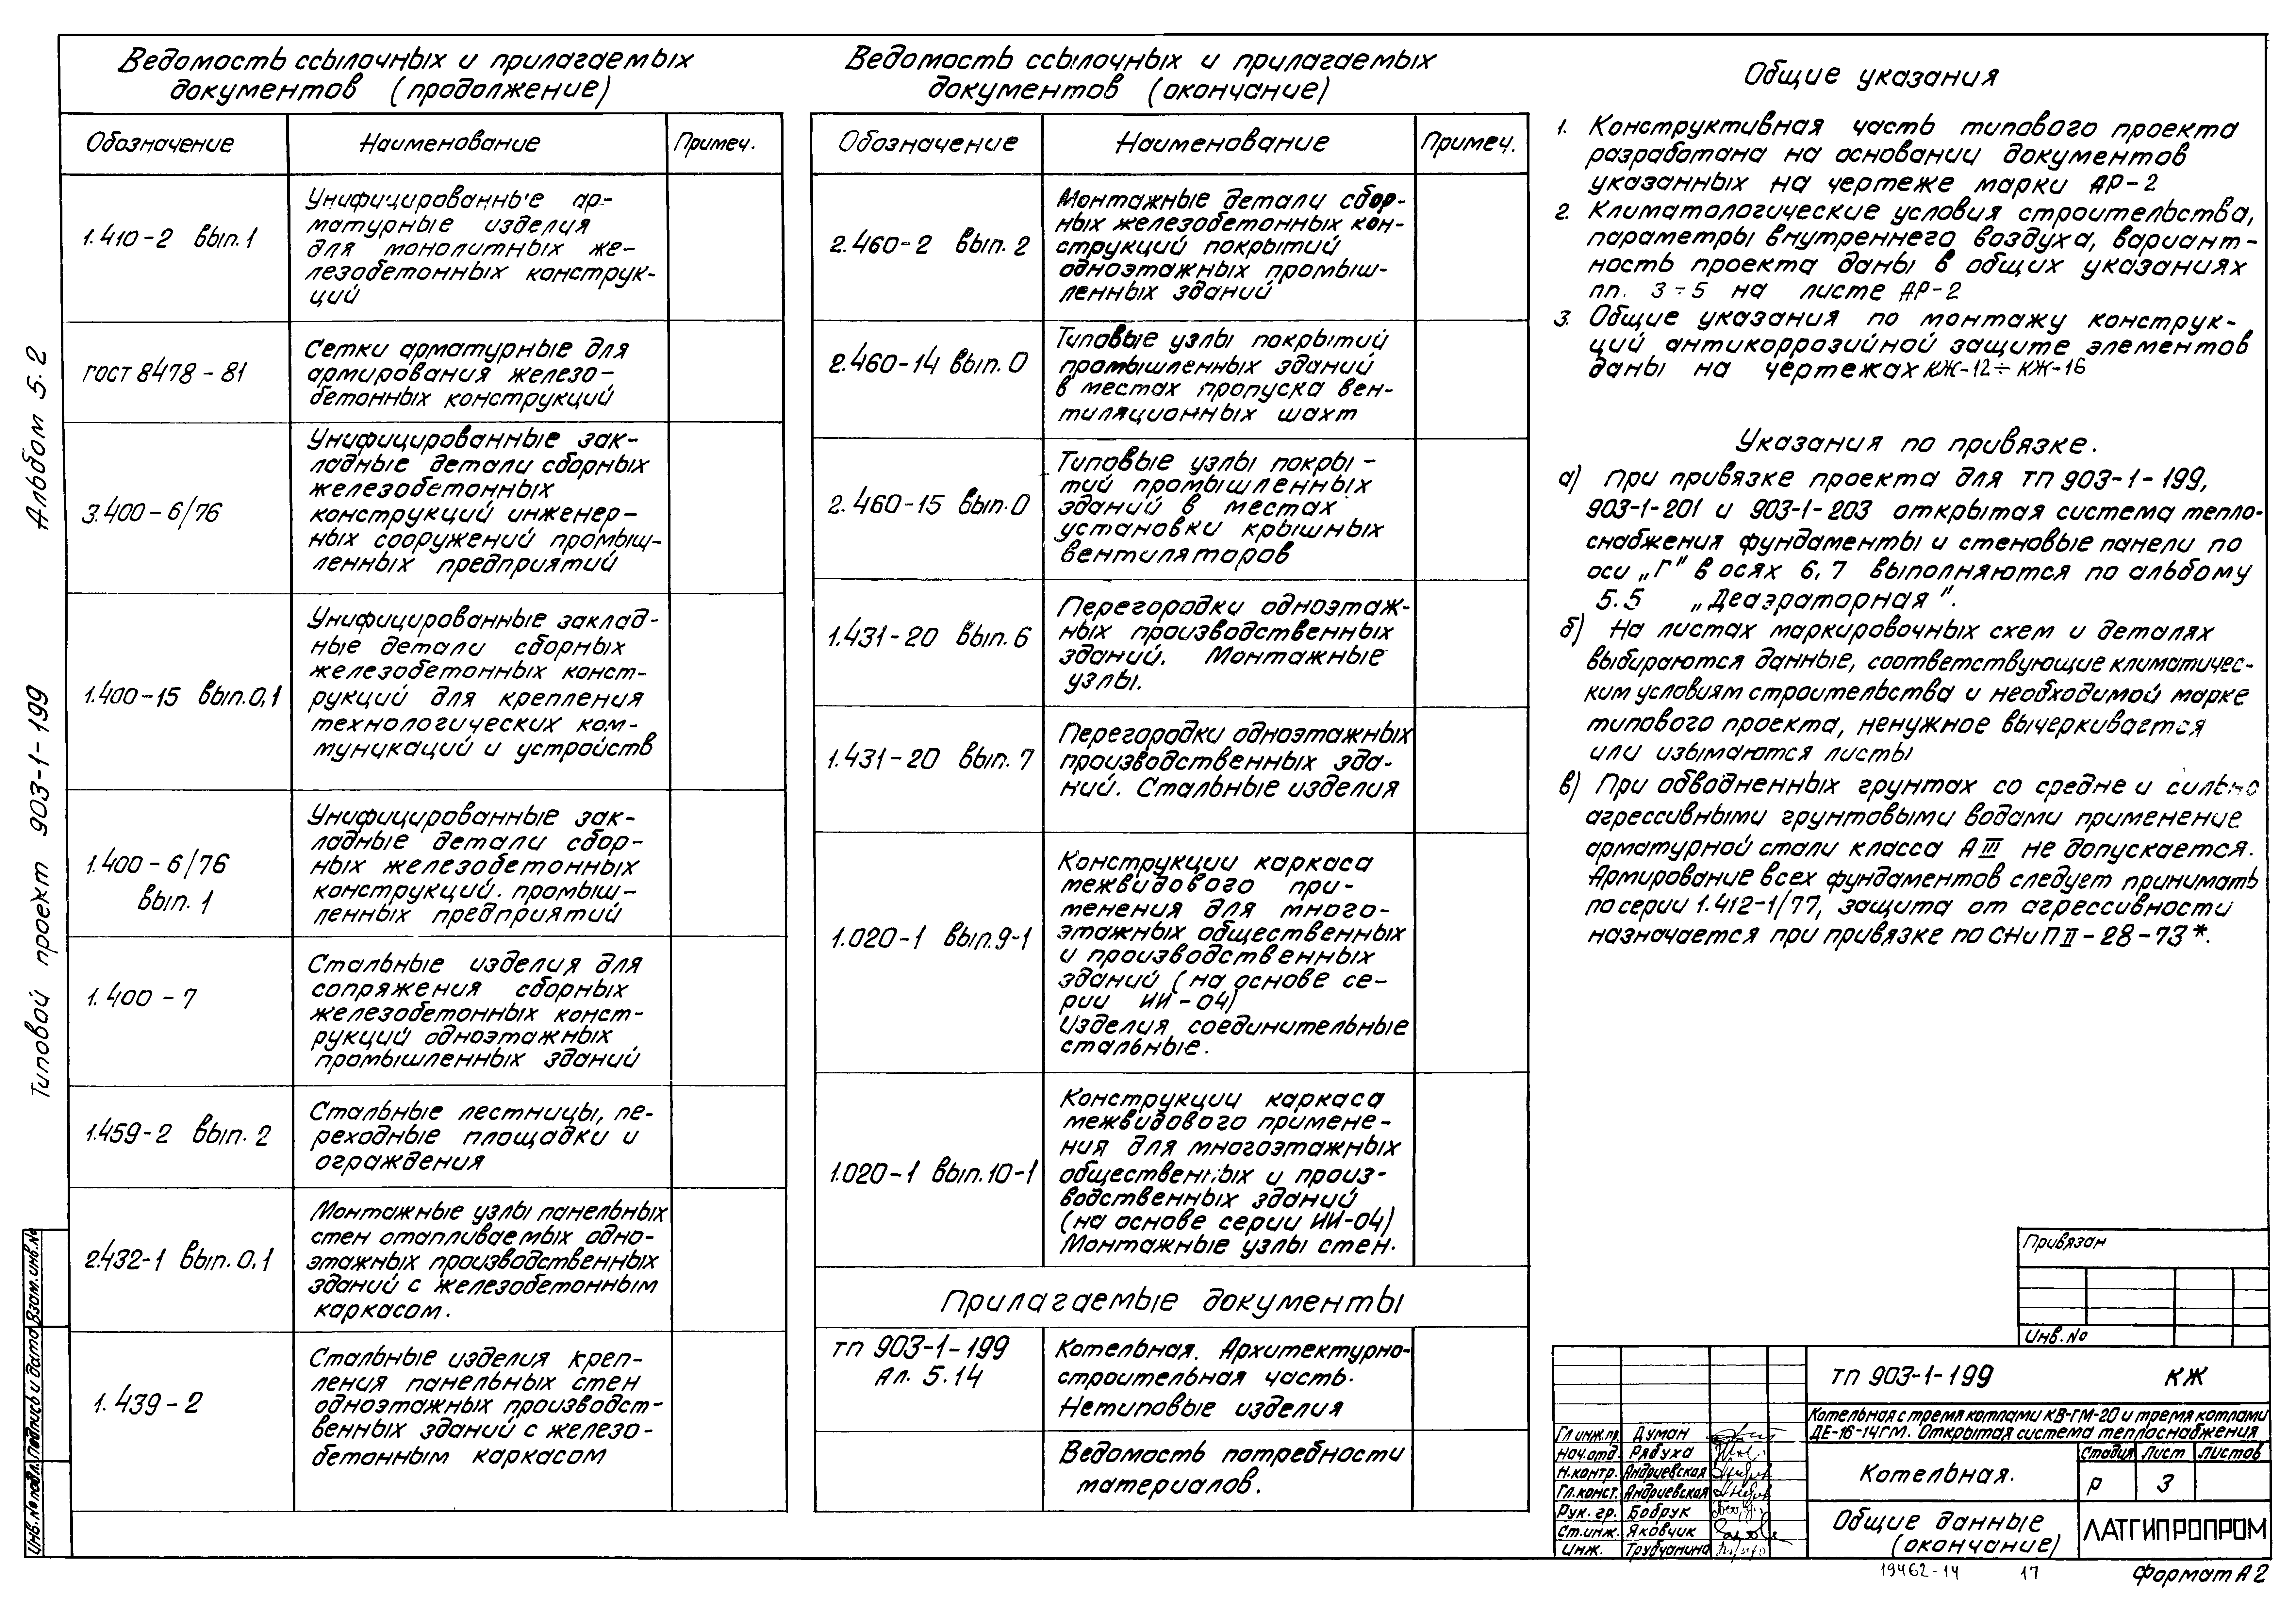 Альбом 5.2
Типовой проект 903-1-199
Взам.инв.№
Подпись и дата
Инв.№ подл.
Ведомость ссылочных и прилагаемых
документов (продолжение)
Обозначение Наименование Примеч.
1.410-2 вып.1
Унифицированные ар-
матурные изделия
для монолитных же-
лезобетонных конструк-
ций
ГОСТ 8478-81
Сетки арматурные для
армирования железо-
бетонных конструкций
3.400-6/76
Унифицированные зак-
ладные детали сборных
железобетонных
конструкций инженер-
ных сооружений промыш-
ленных предприятий
1.400-15 вып.0,1
Унифицированные заклад-
ные детали сборных
железобетонных конст-
рукций для крепления
технологических ком-
муникаций и устройств
1.400-6/76
вып.1
Унифицированные зак-
ладные детали сбор-
ных железобетонных
конструкций. промыш-
ленных предприятий
1.400-7
Стальные изделия для
сопряжения сборных
железобетонных конст-
рукций одноэтажных
промышленных зданий
1.459-2 вып.2
Стальные лестницы, пе-
реходные площадки и
ограждения
2.432-1 вып.0,1
Монтажные узлы панельных
стен отапливаемых одно-
этажных производственных
зданий с железобетонным
каркасом.
1.439-2
Стальные изделия креп-
ления панельных стен
одноэтажных производст-
венных зданий с железо-
бетонным каркасом
Ведомость ссылочных и прилагаемых
документов (окончание)
Обозначение Наименование Примеч.
2.460-2 вып.2
Монтажные детали сбор-
ных железобетонных кон-
струкций покрытий
одноэтажных промыш-
ленных зданий
2.460-14 вып.0
Типовые узлы покрытий
промышленных зданий
в местах пропуска вен-
тиляционных шахт
2.460-15 вып.0
Типовые узлы покры-
тий промышленных
зданий в местах
установки крышных
вентиляторов
1.431-20 вып.6
Перегородки одноэтаж-
ных производственных
зданий. Монтажные
узлы.
1.431-20 вып.7
Перегородки одноэтажных
производственных зда-
ний. Стальные изделия
1.020-1 вып.9-1
Конструкции каркаса
межвидового при-
менения для много-
этажных общественных
и производственных
зданий (на основе се-
рии ИИ-04)
Изделия соединительные
стальные.
1.020-1 вып.10-1
Конструкции каркаса
межвидового примене-
ния для многоэтажных
общественных и произ-
водственных зданий
(на основе серии ИИ-04)
Монтажные узлы стен.
Прилагаемые документы
ТП 903-1-199
Ал. 5.14
Котельная. Архитектурно-
строительная часть.
Нетиповые изделия
Ведомость потребности
материалов.
Общие указания
1. Конструктивная часть типового проекта
разработана на основании документов
указанных на чертеже марки АР-2
2. Климатологические условия строительства,
параметры внутреннего воздуха, вариант-
ность проекта даны в общих указаниях
пп. 3÷5 на листе АР-2
3. Общие указания по монтажу конструк-
ций антикоррозийной защите элементов
даны на чертежах КЖ-12÷КЖ-16
Указания по привязке.
а) При привязке проекта для ТП 903-1-199,
903-1-201 и 903-1-203 открытая система тепло-
снабжения фундаменты и стеновые панели по
оси „Г" в осях 6,7 выполняются по альбому
5.5 „Деаэраторная".
б) На листах маркировочных схем и деталях
выбираются данные, соответствующие климатичес-
ким условиям строительства и необходимой марке
типового проекта, ненужное вычеркивается
или изымаются листы
в) При обводненных грунтах со средне и сильно
агрессивными грунтовыми водами применение
арматурной стали класса АIII не допускается.
Армирование всех фундаментов следует принимать
по серии 1.412-1/77, защита от агрессивности
назначается при привязке по СНиП II-28-73*.
Привязан
Инв.№
ТП 903-1-199 КЖ
Котельная с тремя котлами КВ-ГМ-20 и тремя котлами
ДЕ-16-14ГМ. Открытая система теплоснабжения
Гл.инж.пр. Думан
Нач.отд. Рябуха
Н.контр. Андриевская
Гл.конст. Андриевская
Рук.гр. Бобрук
Ст.инж. Яковчик
Инж. Трубчанина
Котельная.
Стадия Лист Листов
Р 3
Общие данные
(окончание)
ЛАТГИПРОПРОМ
19462-14 17
Формат А2